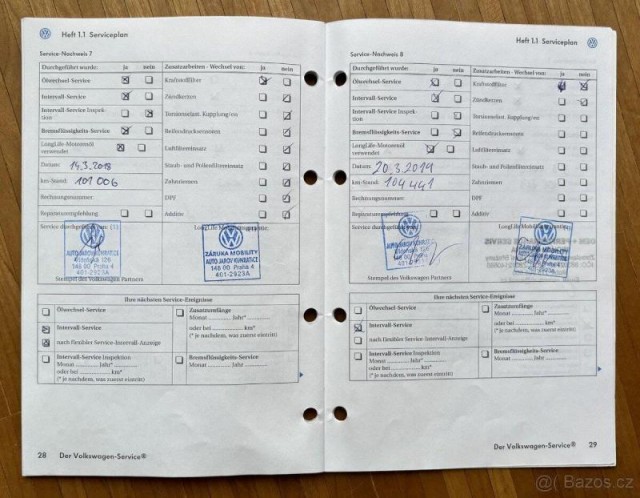 Heft 1.1 Serviceplan
Service-Nachweis 7
Durchgeführt wurde: ja nein
Zusatzarbeiten - Wechsel von: ja nein
Ölwechsel-Service
Kraftstofffilter
Intervall-Service
Zündkerzen
Intervall-Service Inspektion
Bremsflüssigkeits-Service
Reifendichtmittel
LongLife-Motorenöl verwendet
Luftfiltereinsatz
Datum: 14.3.2018
Staub- und Pollenfiltereinsatz
km-Stand: 101 006
Zahnriemen
Rechnungsnummer:
DPF
Reparaturempfehlung
Additiv
Service durchgeführt
LongLife Mobilitätsgarantie
AUTO JAROV KUNRATICE
Vídeňská 126
148 00 Praha 4
461-2923A
ZÁRUKA MOBILITY
AUTO JAROV KUNRATICE
148 00 Praha 4
461-2923A
Stempel des Volkswagen Partners
Ihre nächsten Service-Ereignisse
Ölwechsel-Service
Zusatzumfänge
Monat Jahr*
Intervall-Service
oder bei km*
nach flexibler Service-Intervall-Anzeige
(* je nachdem, was zuerst eintritt)
Intervall-Service Inspektion
Bremsflüssigkeits-Service
Monat Jahr*
Monat Jahr
oder bei km*
(* je nachdem, was zuerst eintritt)
28 Der Volkswagen-Service®
Heft 1.1 Serviceplan
Service-Nachweis 8
Durchgeführt wurde: ja nein
Zusatzarbeiten - Wechsel von: ja nein
Ölwechsel-Service
Kraftstofffilter
Intervall-Service
Zündkerzen
Intervall-Service Inspektion
Bremsflüssigkeits-Service
Reifendichtmittel
LongLife-Motorenöl verwendet
Luftfiltereinsatz
Datum: 20.3.2019
Staub- und Pollenfiltereinsatz
km-Stand: 104 441
Zahnriemen
Rechnungsnummer:
DPF
Reparaturempfehlung
Additiv
Service durchgeführt
ZÁRUKA MOBILITY
AUTO JAROV KUNRATICE
Stempel des Volkswagen Partners
Ihre nächsten Service-Ereignisse
Ölwechsel-Service
Zusatzumfänge
Monat Jahr*
Intervall-Service
oder bei km*
nach flexibler Service-Intervall-Anzeige
(* je nachdem, was zuerst eintritt)
Intervall-Service Inspektion
Bremsflüssigkeits-Service
Monat Jahr*
Monat Jahr
oder bei km*
(* je nachdem, was zuerst eintritt)
Der Volkswagen-Service® 29
Bazos.cz